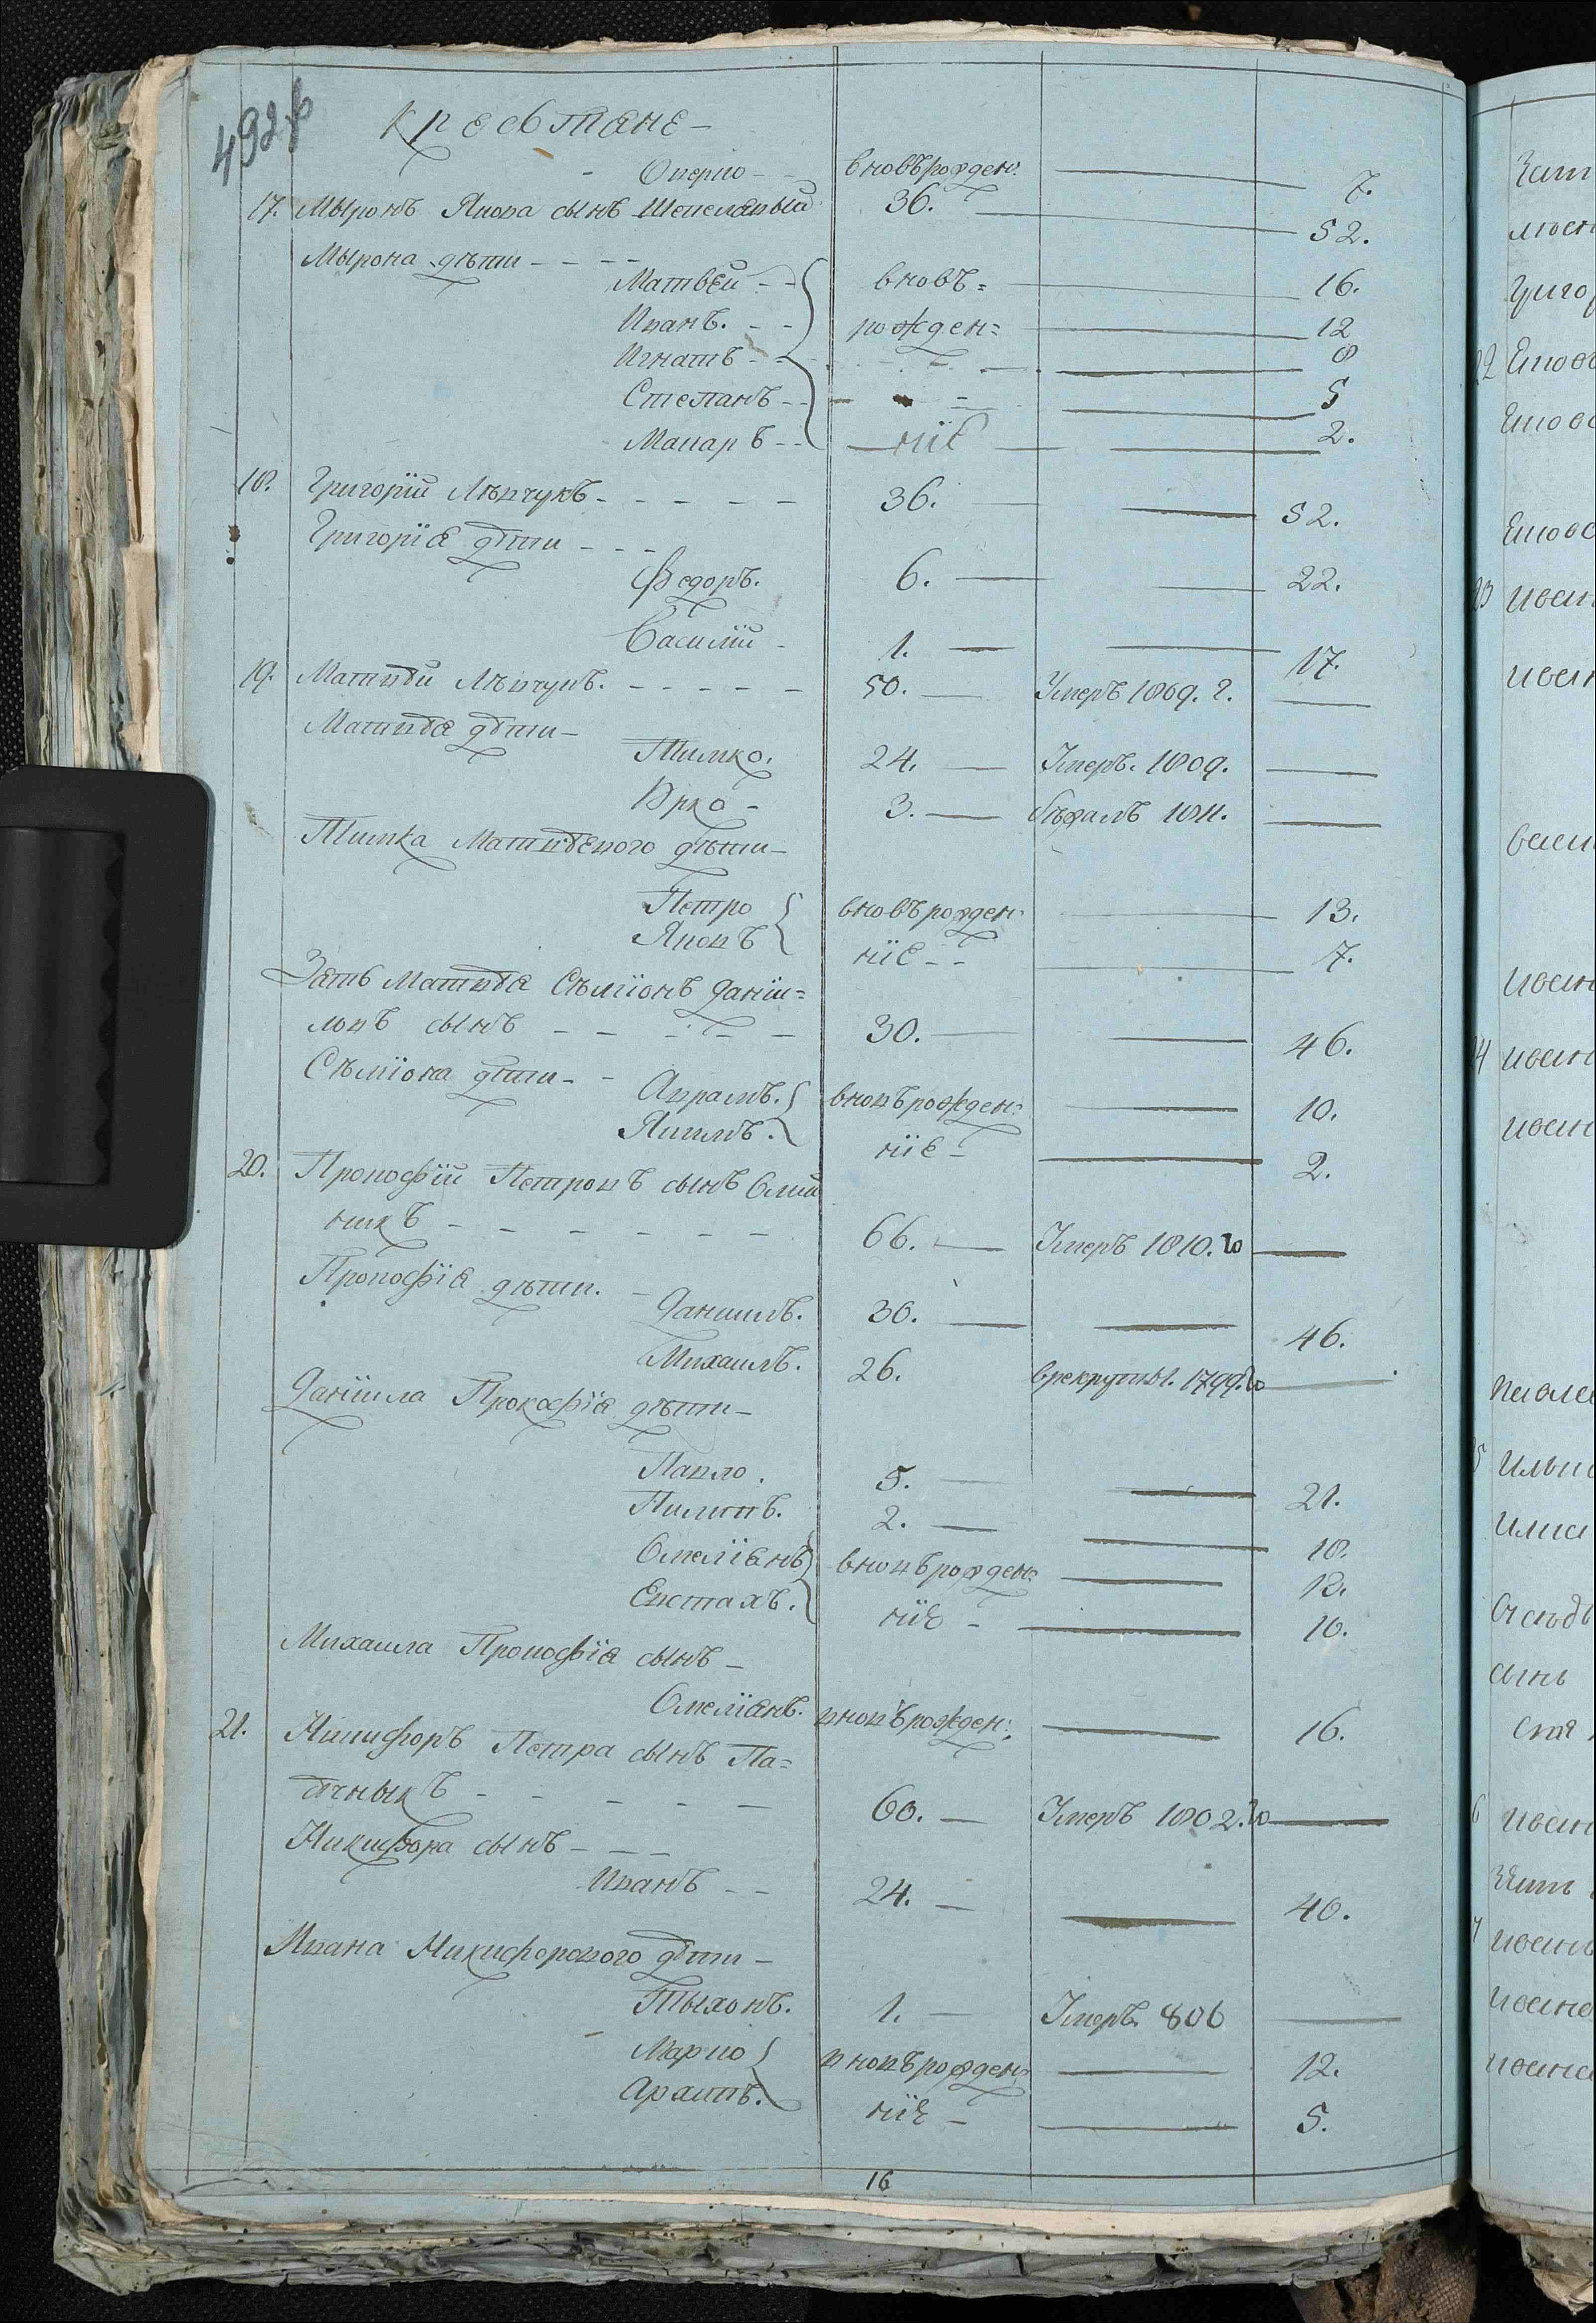 крестяне –
Оверко – – вновърожден: 7.
17. Мыронъ Якова сынъ Шепелявый 36. 52.
Мырона дѣти – – – –
Матвей – – вновъ= 16.
Иванъ. – – рожден= 12
Игнатъ – – 8
Степанъ – – 5
Макаръ – – ніе 2.
18. Григорій Лѣвчукъ – – – – – 36. 52.
Григорія дѣти – – –
Федоръ. 6. 22.
Василій – 1. 17.
19. Матвѣй Лѣвчукъ. – – – – – 50. Умеръ 1809. г.
Матвѣя дѣти –
Тимко. 24. Умеръ. 1809.
Юрко – 3. бѣжалъ 1811.
Тимка Матвѣевого дѣти –
Петро вновърожден: 13.
Яковъ ніе – – 7.
Зять Матвѣя Сѣміонъ Даніи=
ловъ сынъ – – – – – 30. 46.
Сѣміона дѣти – – Аврамъ. вновърожден: 10.
Якимъ. ніе – 2.
20. Прокофій Петровъ сынъ Олій
никъ – – – – – – 66. Умеръ 1810. го
Прокофія дѣти. –
Даниилъ. 30. 46.
Михаилъ. 26. врекруты. 1799. го
Даніила Прокофія дѣти –
Павло. 5. 21.
Пилипъ. 2. 18.
Омеліянъ вновърожден: 12.
Евстахъ. ніе – 10.
Михаила Прокофія сынъ –
Омеліянъ. вновърожден: 16.
21. Никифоръ Петра сынъ Па=
сѣчныкъ – – – – – 60. Умеръ 1802. го
Никифора сынъ – – –
Иванъ – – 24. 40.
Ивана Никифорового дѣти –
Тыхонъ. 1. Умеръ 806
Марко вновърожден: 12.
ніе – 5.
16